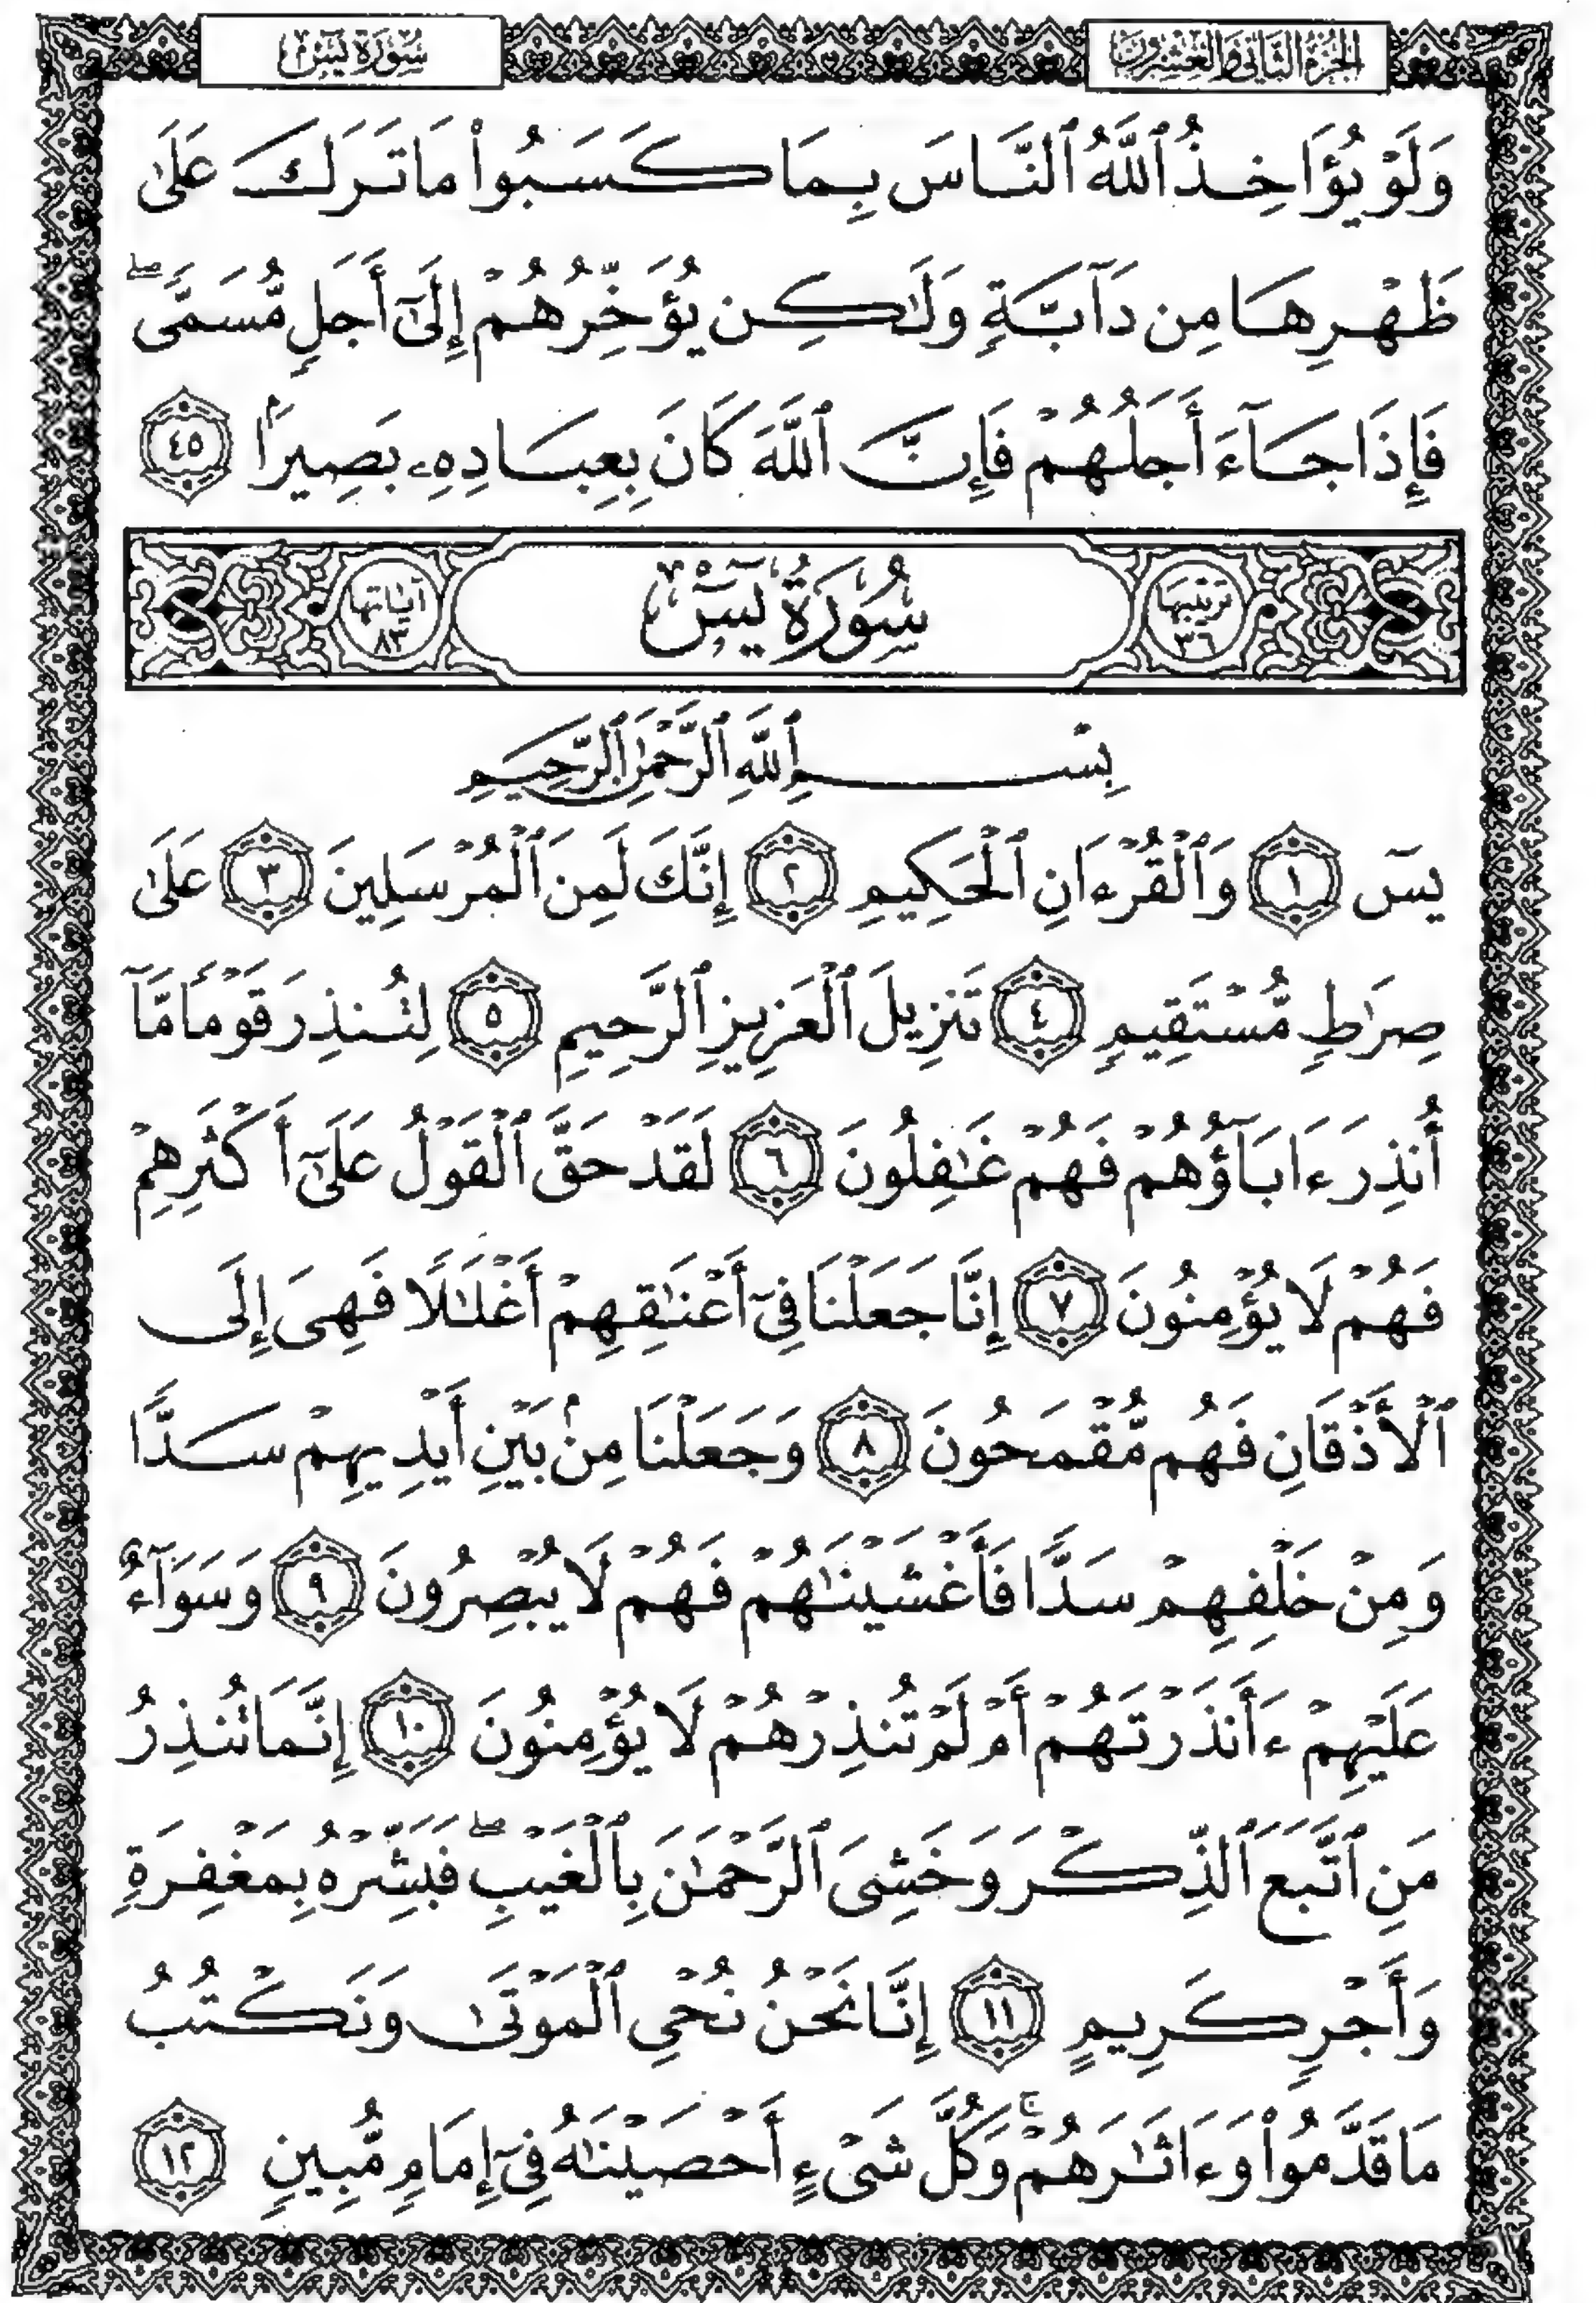 الجزء الثاني والعشرون
سُورَةُ يسٓ
وَلَوْ يُؤَاخِذُ ٱللَّهُ ٱلنَّاسَ بِمَا كَسَبُوا۟ مَا تَرَكَ عَلَىٰ
ظَهْرِهَا مِن دَآبَّةٍ وَلَٰكِن يُؤَخِّرُهُمْ إِلَىٰٓ أَجَلٍ مُّسَمًّى ۖ
فَإِذَا جَآءَ أَجَلُهُمْ فَإِنَّ ٱللَّهَ كَانَ بِعِبَادِهِۦ بَصِيرًۢا ٤٥
ترتيبها ٣٦
سُورَةُ يسٓ
آياتها ٨٣
بِسْمِ ٱللَّهِ ٱلرَّحْمَٰنِ ٱلرَّحِيمِ
يسٓ ١ وَٱلْقُرْءَانِ ٱلْحَكِيمِ ٢ إِنَّكَ لَمِنَ ٱلْمُرْسَلِينَ ٣ عَلَىٰ
صِرَٰطٍ مُّسْتَقِيمٍ ٤ تَنزِيلَ ٱلْعَزِيزِ ٱلرَّحِيمِ ٥ لِتُنذِرَ قَوْمًا مَّآ
أُنذِرَ ءَابَآؤُهُمْ فَهُمْ غَٰفِلُونَ ٦ لَقَدْ حَقَّ ٱلْقَوْلُ عَلَىٰٓ أَكْثَرِهِمْ
فَهُمْ لَا يُؤْمِنُونَ ٧ إِنَّا جَعَلْنَا فِىٓ أَعْنَٰقِهِمْ أَغْلَٰلًا فَهِىَ إِلَى
ٱلْأَذْقَانِ فَهُم مُّقْمَحُونَ ٨ وَجَعَلْنَا مِنۢ بَيْنِ أَيْدِيهِمْ سَدًّا
وَمِنْ خَلْفِهِمْ سَدًّا فَأَغْشَيْنَٰهُمْ فَهُمْ لَا يُبْصِرُونَ ٩ وَسَوَآءٌ
عَلَيْهِمْ ءَأَنذَرْتَهُمْ أَمْ لَمْ تُنذِرْهُمْ لَا يُؤْمِنُونَ ١٠ إِنَّمَا تُنذِرُ
مَنِ ٱتَّبَعَ ٱلذِّكْرَ وَخَشِىَ ٱلرَّحْمَٰنَ بِٱلْغَيْبِ ۖ فَبَشِّرْهُ بِمَغْفِرَةٍ
وَأَجْرٍ كَرِيمٍ ١١ إِنَّا نَحْنُ نُحْىِ ٱلْمَوْتَىٰ وَنَكْتُبُ
مَا قَدَّمُوا۟ وَءَاثَٰرَهُمْ ۚ وَكُلَّ شَىْءٍ أَحْصَيْنَٰهُ فِىٓ إِمَامٍ مُّبِينٍ ١٢